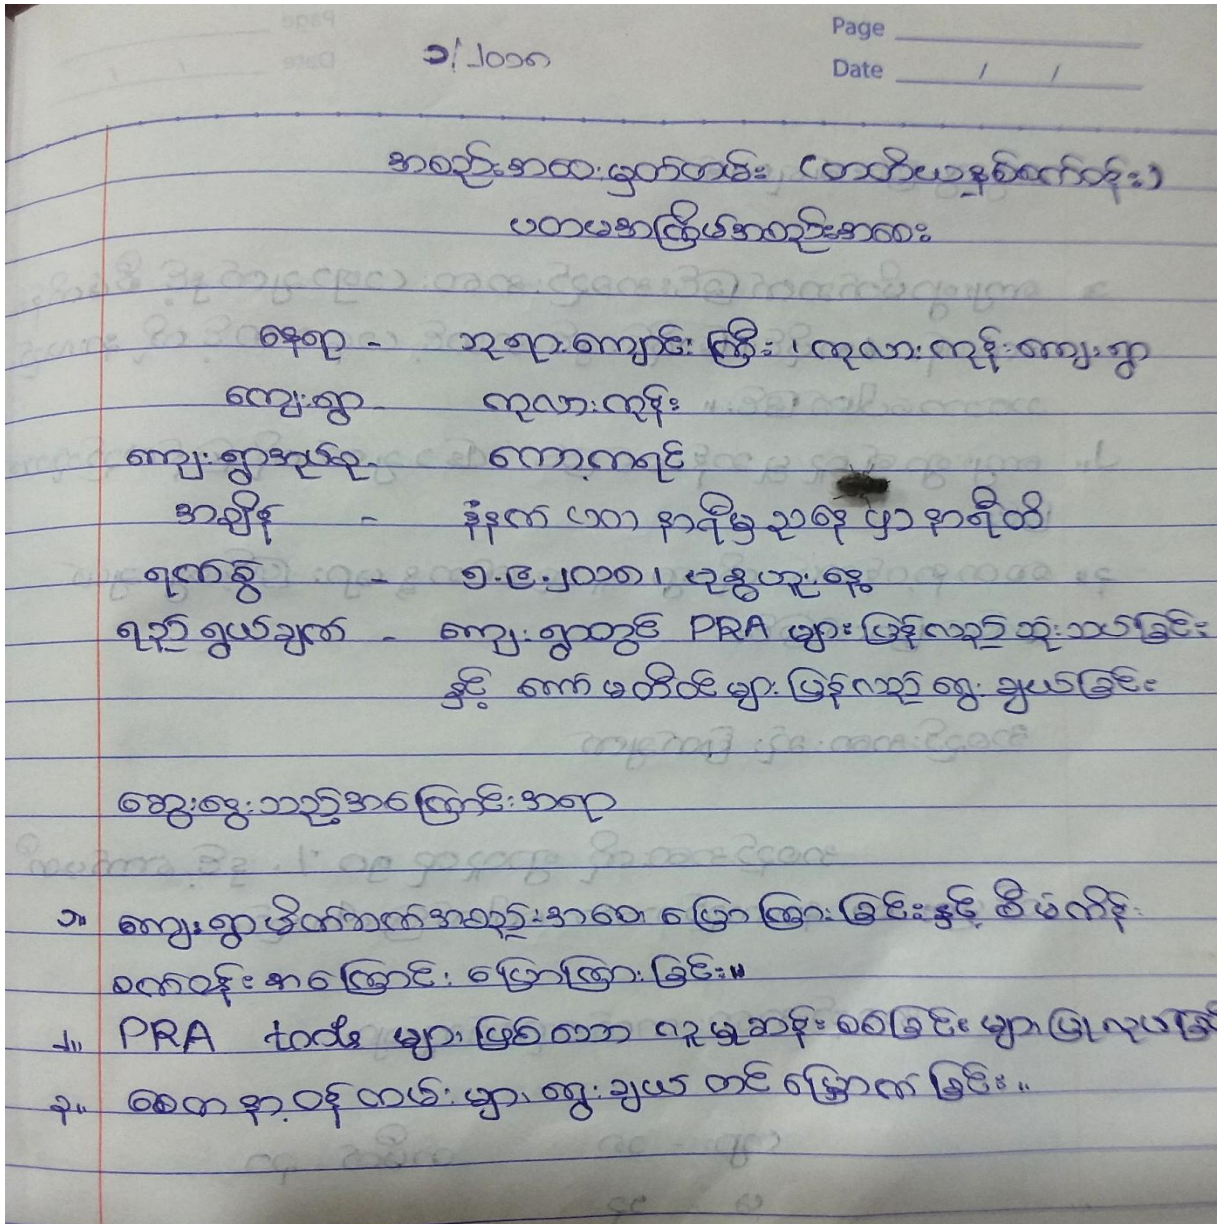 Page
Date / /
၁/၂၀၁၈
အစည်းအဝေးမှတ်တမ်း (တတိယနှစ်စက်ဝန်း)
ပတမအကြိမ်အစည်းအဝေး
နေရာ - ဘုရားကျောင်းကြီး၊ ကုလားကုန်းကျေးရွာ
ကျေးရွာ - ကုလားကုန်း
ကျေးရွာအုပ်စု - ကော့ကရင်
အချိန် - နံနက် (၁၀) နာရီမှ ညနေ နာရီထိ
ရက်စွဲ - ၅.၄.၂၀၁၈၊ ဗုဒ္ဓဟူးနေ့
ရည်ရွယ်ချက် - ကျေးရွာတွင် PRA များပြန်လည်သုံးသပ်ခြင်း
နှင့် ကော်မတီဝင်များပြန်လည်ရွေးချယ်ခြင်း
ဆွေးနွေးသည့်အကြောင်းအရာ
၁။ ကျေးရွာမိတ်ဆက်အစည်းအဝေး ပြောကြားခြင်းနှင့် စီမံကိန်း
စက်ဝန်းအကြောင်း ပြောကြားခြင်း။
၂။ PRA tools များဖြစ်သော လူမှုဆန်းစစ်ခြင်းများပြုလုပ်ခြင်
၃။ စေတနာ့ဝန်ထမ်းများရွေးချယ်တင်မြှောက်ခြင်း။